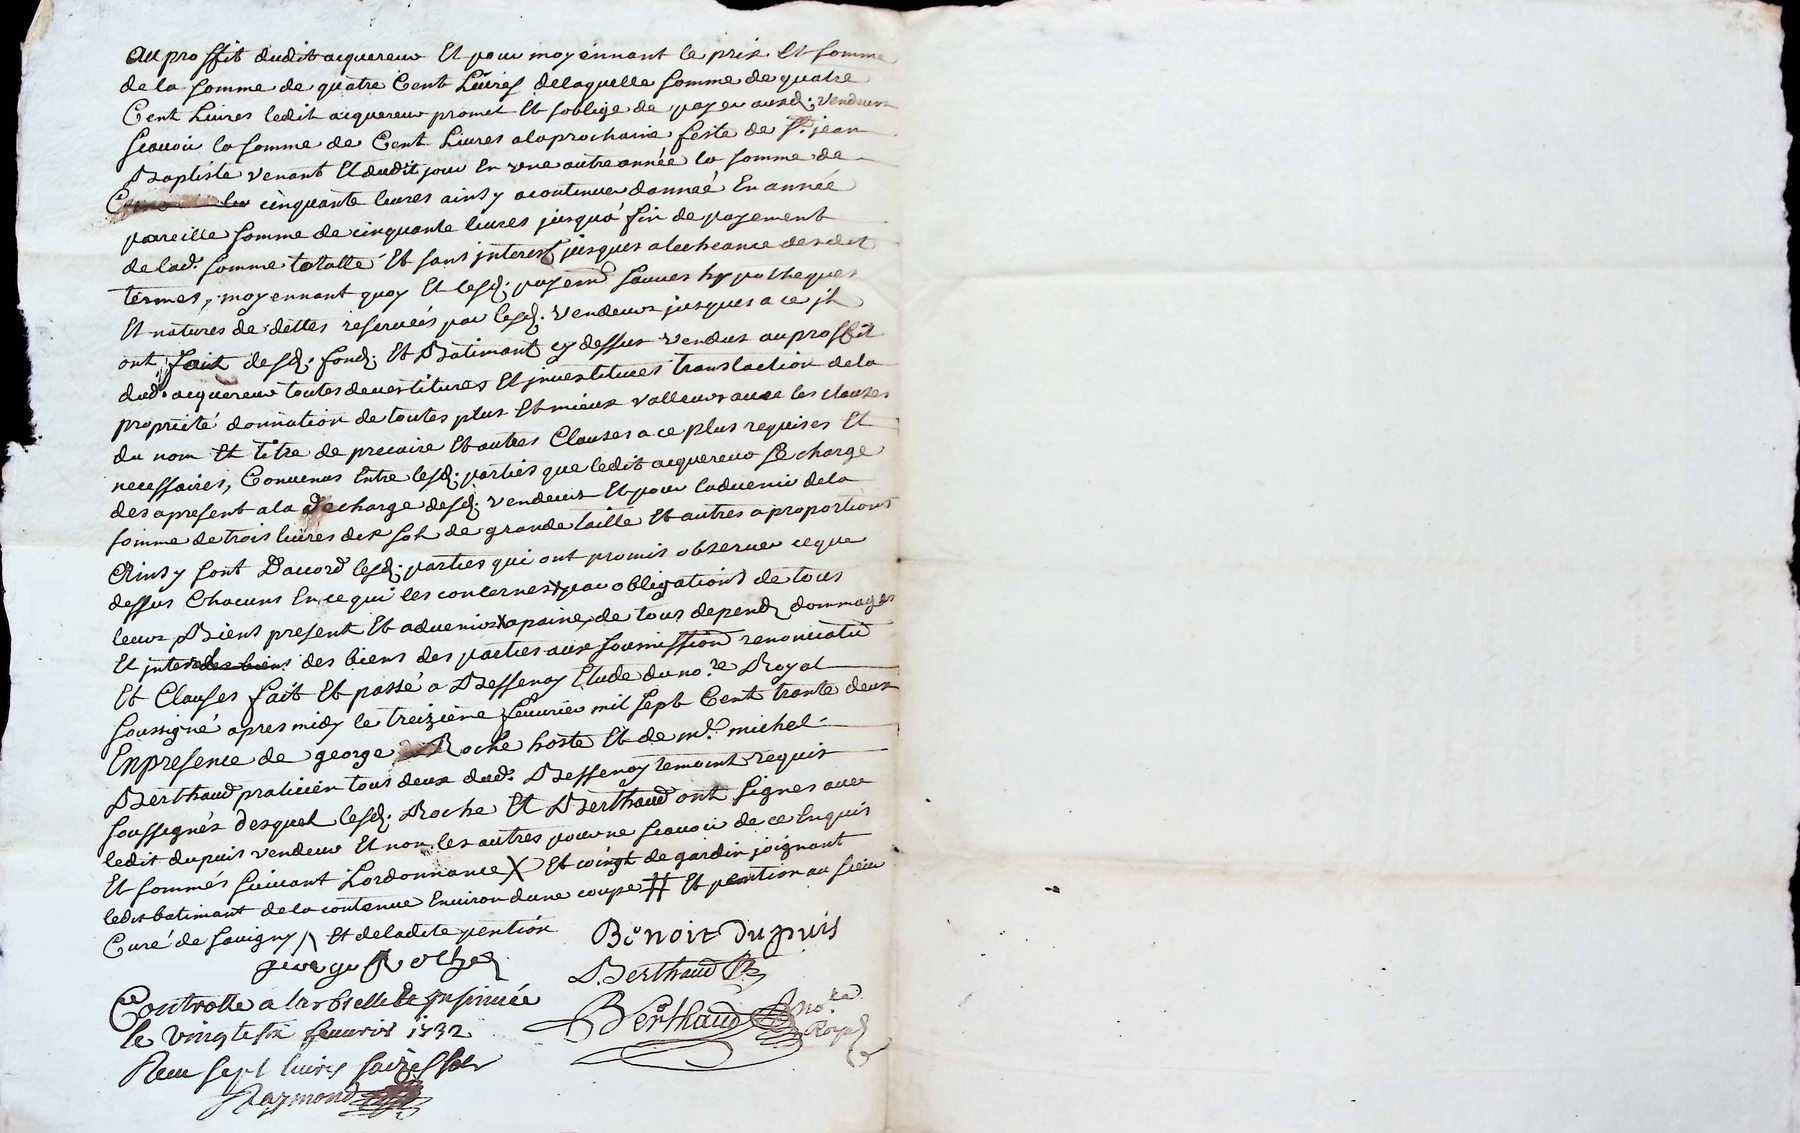 Au proffit dudit acquereur Et pour moyennant le prix Et somme
de la somme de quatre Cent Livres delaquelle somme de quatre
Cent Livres ledit acquereur promet Et soblige de payer ausd. vendeurs
scavoir la somme de Cent Livres a la prochaine feste de St. jean
Baptiste venant Et dudit jour En une autre année la somme de
cinquante livres ainsy a continuer danneé En année
pareille somme de cinquante livres jusqua fin de payement
de lad. somme totalle Et sans interest jusques a lecheance desdt
termes, moyennant quoy Et lesd. payemt sauves hypotheques
Et natures de dettes reserveés par lesd. vendeurs jusques a ce jls
ont fait desd. fond. Et Batimant cy dessus vendus au proffit
dud. acquereur toutes devestitures Et jnvestitures translaction de la
proprieté donnation de toutes plus Et mieux valleur avec les clauses
du nom Et titre de precaire Et autres Clauses a ce plus requises Et
necessaires, Convenus Entre lesd. parties que ledit acquereur se charge
des apresent a la decharge desd. vendeurs Et pour ladvenir de la
somme de trois livres dix sols de grande taille Et autres a proportions
Ainsy sont Daccord lesd. parties qui ont promis observer ce que
dessus Chacuns En ce qui les concernes par obligations de tous
leurs Biens present Et advenir X a paine de tous depend dommages
Et jnterest des biens des biens des parties aux soumission renonciatio
Et Clauses fait Et passé a Bessenay Etude du no.re Royal
soussigné apres midy le treizième feuvrier mil sept Cent trante deux
En presence de george Roche hoste Et de me. michel
Berthaud praticien tous deux dud. Bessenay temoint requis
soussignés desquel lesd. Roche Et Berthaud ont signes avec
ledit dupuis vendeur Et non les autres pour ne scavoir de ce Enquis
Et sommés suivant Lordonnance X Et coingt de gardin joignant
ledit batimant de la contenue Environ dune coupe # Et pention au sieur
Curé de Savigny /\ Et de ladite pention
george Roche
Benoit Dupuis
Berthaud
Controlle a larbrelle Et Insinuée
Berthaud no.re Royal
le vingt six feuvrier 1732
Receu sept livres saize sols
Raymond